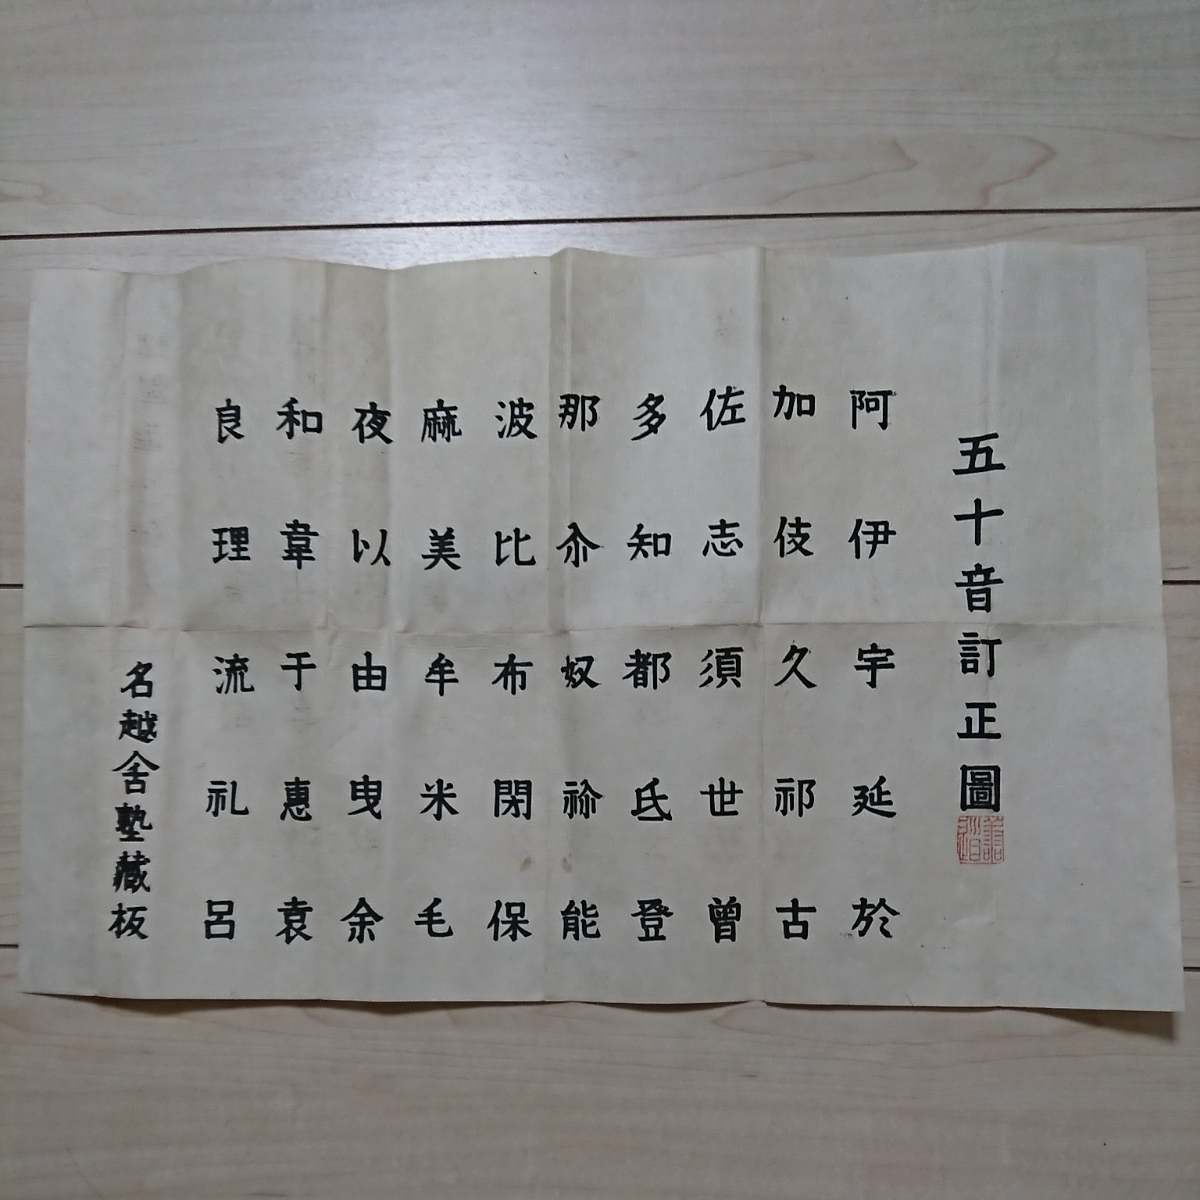 五十音訂正圖
阿伊宇延於
加伎久祁古
佐志須世曽
多知都氐登
那尒奴祢能
波比布閇保
麻美牟米毛
夜以由曳余
和韋于惠袁
良理流礼呂
名越舎塾藏板